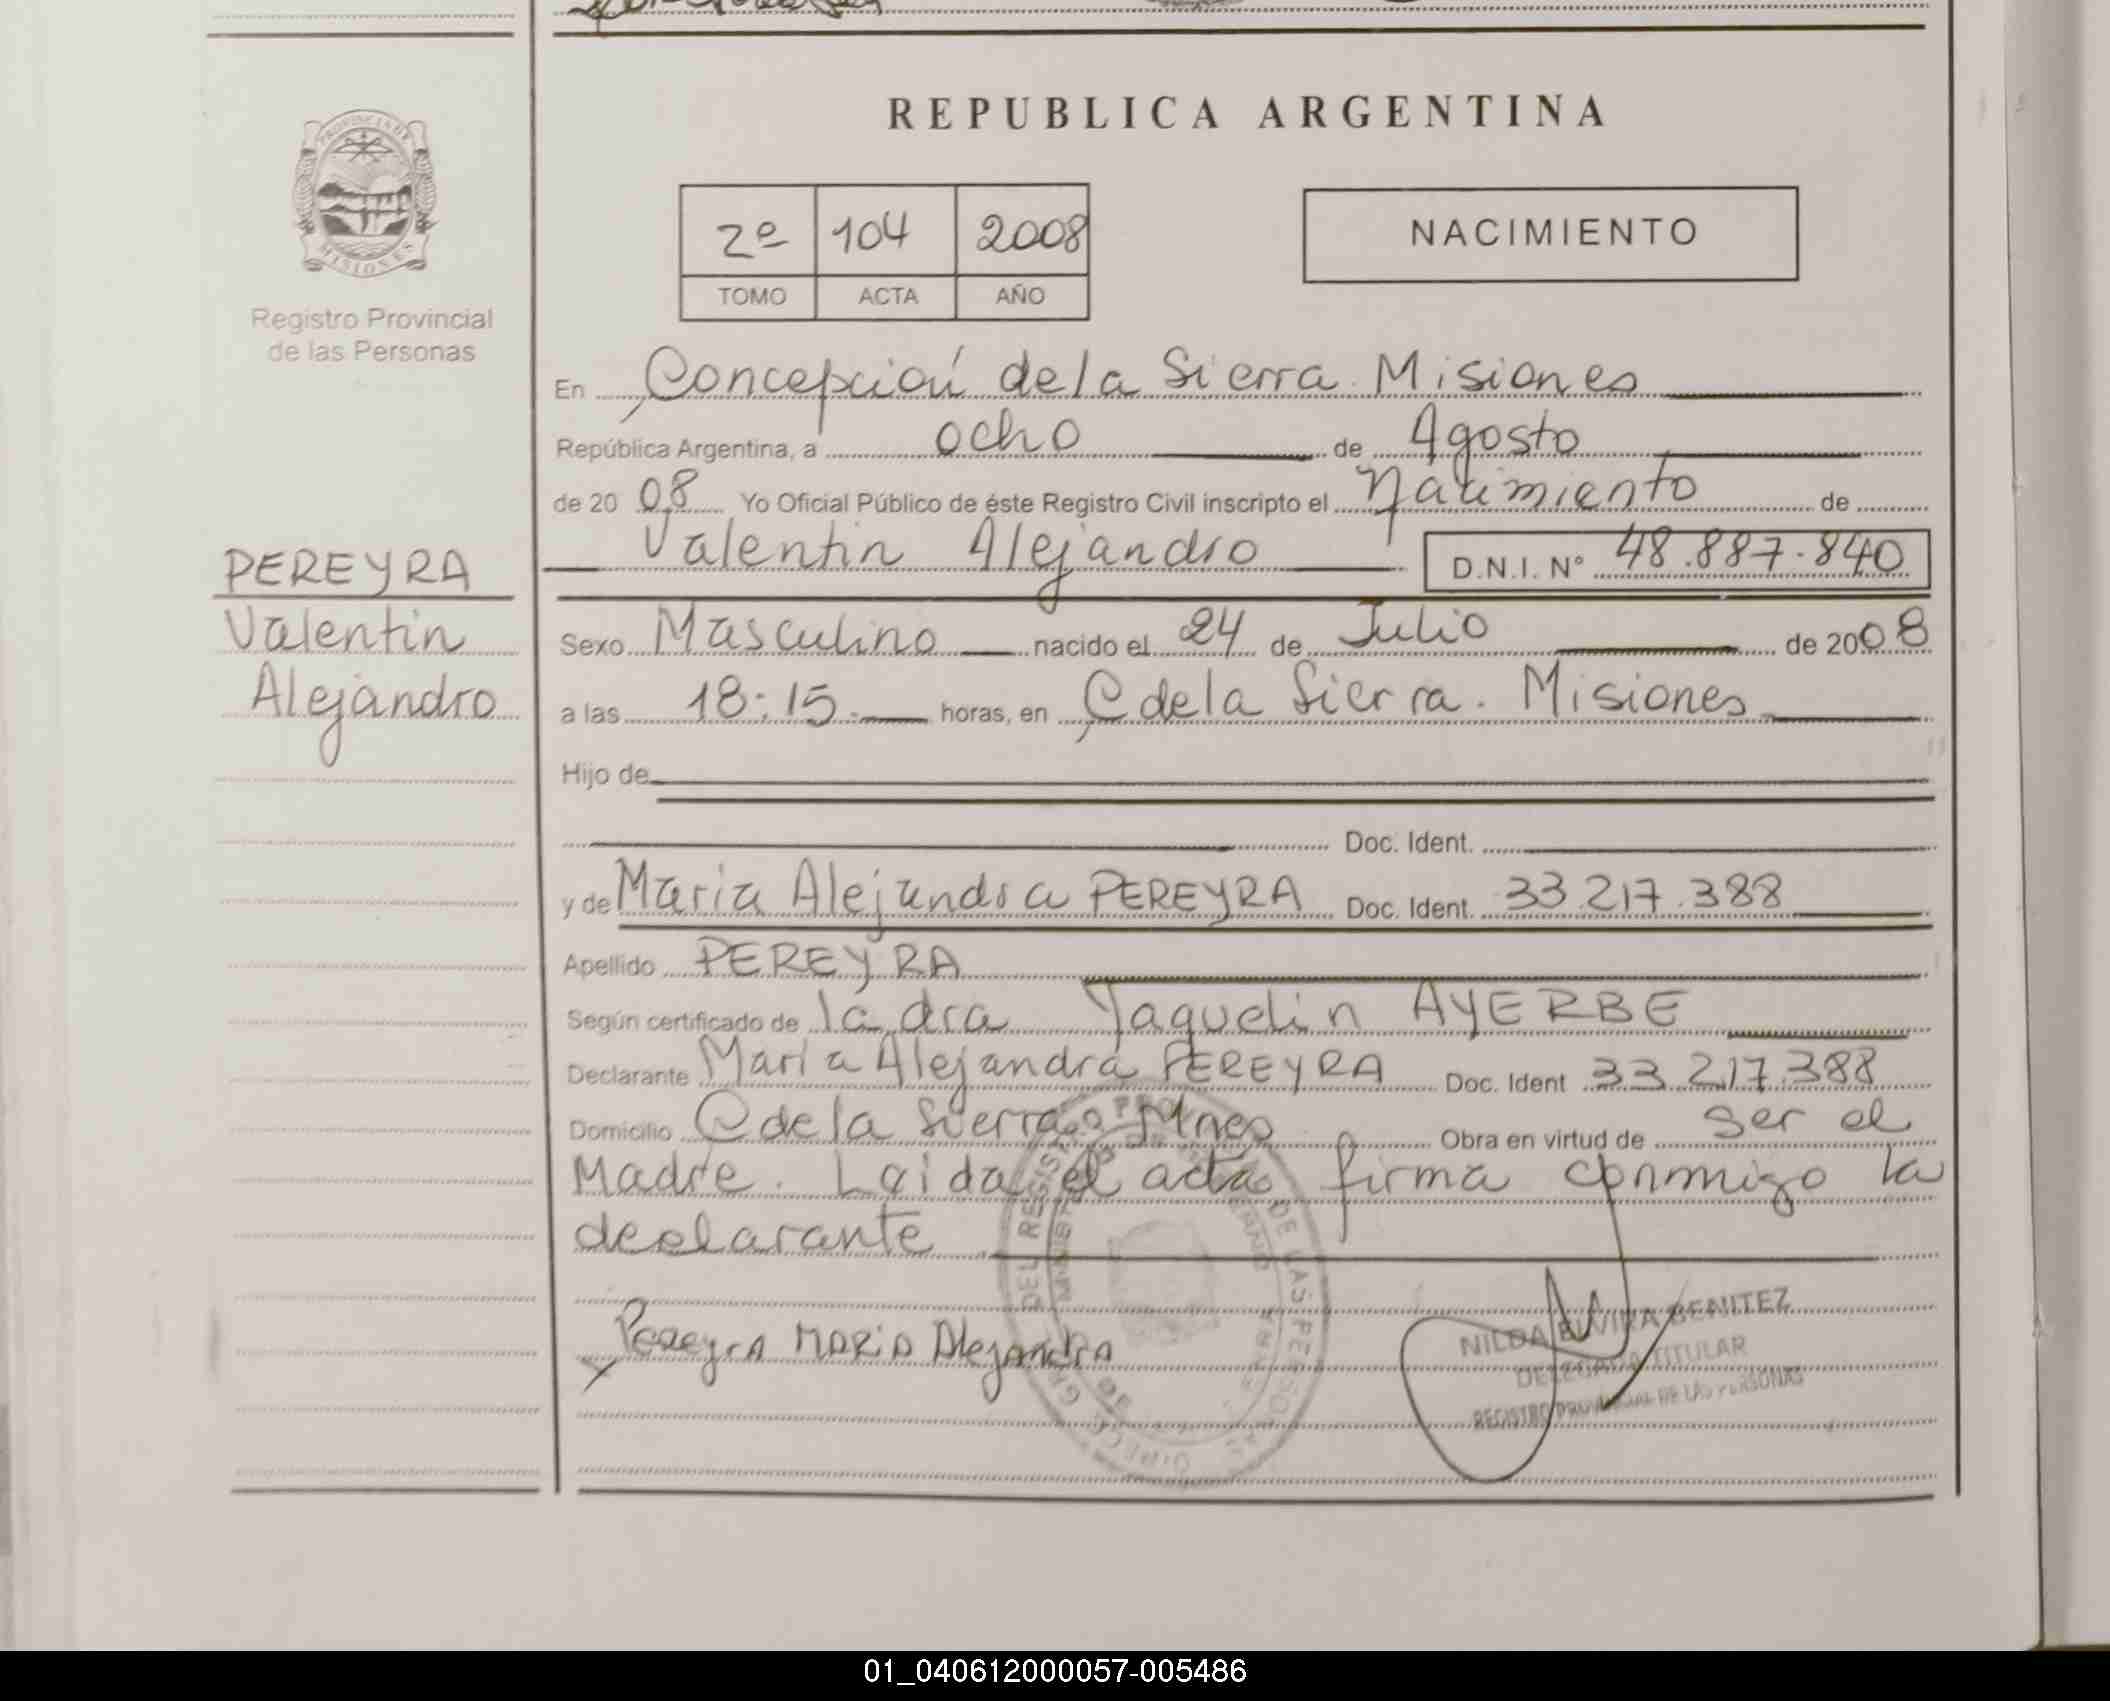 REPUBLICA ARGENTINA
PROVINCIA DE
MISIONES
Registro Provincial
de las Personas
2º 104 2008
TOMO ACTA AÑO
NACIMIENTO
En Concepción de la Sierra. Misiones
República Argentina, a ocho de Agosto
de 2008 Yo Oficial Público de éste Registro Civil inscripto el Nacimiento de
Valentin Alejandro D.N.I. Nº 48.887.840
PEREYRA
Valentin
Alejandro
Sexo Masculino nacido el 24 de Julio de 2008
a las 18:15 horas, en C de la Sierra. Misiones
Hijo de
Doc. Ident.
y de Maria Alejandra PEREYRA Doc. Ident. 33.217.388
Apellido PEREYRA
Según certificado de la dra Yaquelin AYERBE
Declarante Maria Alejandra PEREYRA Doc. Ident 33.217.388
Domicilio C de la Sierra Mnes Obra en virtud de ser el
Madre. Leida el acta firma conmigo la
declarante
Pereyra MARIA Alejandra
NILDA ELVIRA BENITEZ
DELEGADA TITULAR
REGISTRO PROVINCIAL DE LAS PERSONAS
01_040612000057-005486